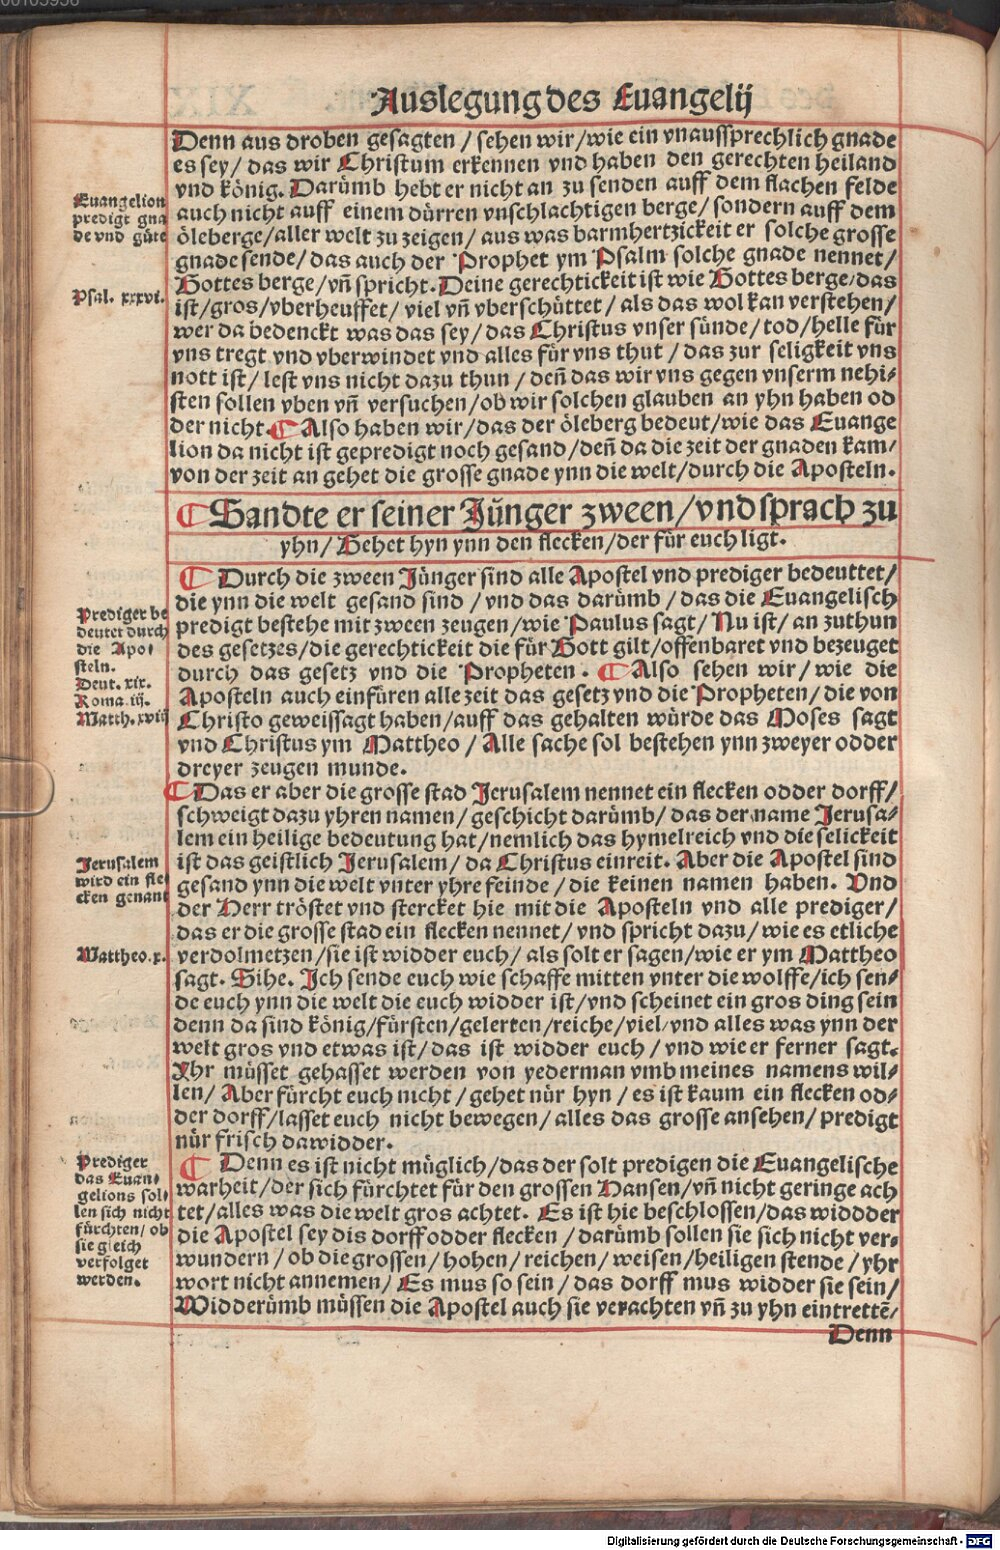 Auslegung des Euangelij
Denn aus droben gesagten / sehen wir / wie ein vnaussprechlich gnade
es sey / das wir Christum erkennen vnd haben den gerechten heiland
vnd könig. Darümb hebt er nicht an zu senden auff dem flachen felde
auch nicht auff einem dürren vnschlachtigen berge / sondern auff dem
öleberge / aller welt zu zeigen / aus was barmhertzickeit er solche grosse
gnade sende / das auch der Prophet ym Psalm solche gnade nennet /
Gottes berge / vñ spricht. Deine gerechtickeit ist wie Gottes berge / das
ist / gros / vberheuffet / viel vñ vberschüttet / als das wol kan verstehen /
wer da bedenckt was das sey / das Christus vnser sünde / tod / helle für
vns tregt vnd vberwindet vnd alles für vns thut / das zur seligkeit vns
nott ist / lest vns nicht dazu thun / deñ das wir vns gegen vnserm nehi-
sten sollen vben vñ versuchen / ob wir solchen glauben an yhn haben od
der nicht. Also haben wir / das der öleberg bedeut / wie das Euange
lion da nicht ist gepredigt noch gesand / deñ da die zeit der gnaden kam /
von der zeit an gehet die grosse gnade ynn die welt / durch die Aposteln.
Euangelion
predigt gna
de vnd güte
Psal. xxxvi.
Sandte er seiner Jünger zween / vnd sprach zu
yhn / Gehet hyn ynn den flecken / der für euch ligt.
Durch die zween Jünger sind alle Apostel vnd prediger bedeuttet /
die ynn die welt gesand sind / vnd das darümb / das die Euangelisch
predigt bestehe mit zween zeugen / wie Paulus sagt / Nu ist / an zuthun
des gesetzes / die gerechtickeit die für Gott gilt / offenbaret vnd bezeuget
durch das gesetz vnd die Propheten. Also sehen wir / wie die
Aposteln auch einfüren alle zeit das gesetz vnd die Propheten / die von
Christo geweissagt haben / auff das gehalten würde das Moses sagt
vnd Christus ym Mattheo / Alle sache sol bestehen ynn zweyer odder
dreyer zeugen munde.
Prediger be
deutet durch
die Apo-
steln.
Deut. xix.
Roma. iij.
Matth. xviij
Das er aber die grosse stad Jerusalem nennet ein flecken odder dorff /
schweigt dazu yhren namen / geschicht darümb / das der name Jerusa-
lem ein heilige bedeutung hat / nemlich das hymelreich vnd die selickeit
ist das geistlich Jerusalem / da Christus einreit. Aber die Apostel sind
gesand ynn die welt vnter yhre feinde / die keinen namen haben. Vnd
der Herr tröstet vnd stercket hie mit die Aposteln vnd alle prediger /
das er die grosse stad ein flecken nennet / vnd spricht dazu / wie es etliche
verdolmetzen / sie ist widder euch / als solt er sagen / wie er ym Mattheo
sagt. Sihe. Ich sende euch wie schaffe mitten vnter die wolffe / ich sen-
de euch ynn die welt die euch widder ist / vnd scheinet ein gros ding sein
denn da sind könig / fürsten / gelerten / reiche / viel / vnd alles was ynn der
welt gros vnd etwas ist / das ist widder euch / vnd wie er ferner sagt.
Ihr müsset gehasset werden von yederman vmb meines namens wil-
len / Aber fürcht euch nicht / gehet nür hyn / es ist kaum ein flecken od-
der dorff / lasset euch nicht bewegen / alles das grosse ansehen / predigt
nür frisch dawidder.
Jerusalem
wird ein fle-
cken genant
Mattheo. x.
Denn es ist nicht müglich / das der solt predigen die Euangelische
warheit / der sich fürchtet für den grossen Hansen / vñ nicht geringe ach
tet / alles was die welt gros achtet. Es ist hie beschlossen / das widdder
die Apostel sey dis dorff odder flecken / darümb sollen sie sich nicht ver-
wundern / ob die grossen / hohen / reichen / weisen / heiligen stende / yhr
wort nicht annemen / Es mus so sein / das dorff mus widder sie sein /
Widderümb müssen die Apostel auch sie verachten vñ zu yhn eintrettẽ /
Prediger
das Euan-
gelions sol-
len sich nicht
fürchten / ob
sie gleich
verfolget
werden.
Denn
Digitalisierung gefördert durch die Deutsche Forschungsgemeinschaft - DFG